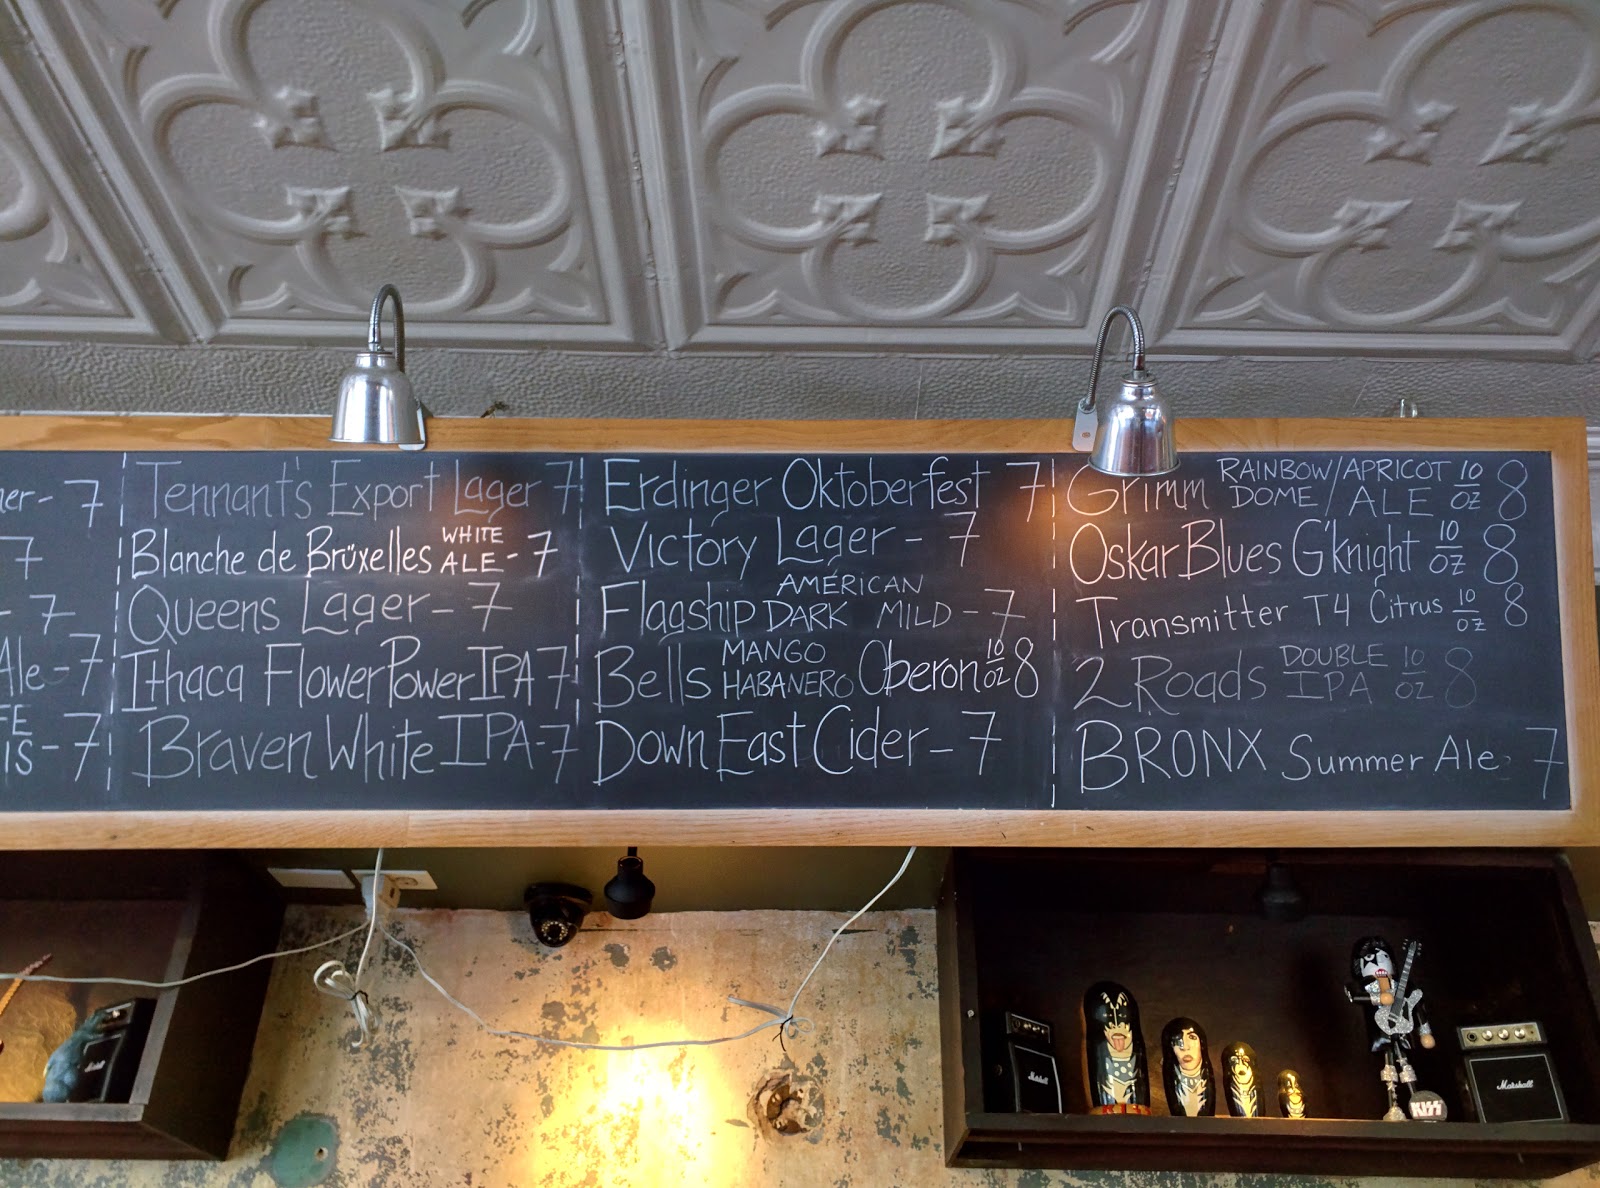 er - 7
7
- 7
Ale - 7
FE
IS - 7
Tennant's Export Lager 7
Blanche de Brüxelles WHITE ALE - 7
Queens Lager - 7
Ithaca FlowerPower IPA 7
Braven White IPA - 7
Erdinger Oktoberfest 7
Victory Lager - 7
Flagship AMERICAN DARK MILD - 7
Bells MANGO HABANERO Oberon 10 oz 8
Down East Cider - 7
Grimm RAINBOW/APRICOT DOME/ALE 10 oz 8
Oskar Blues G'knight 10 oz 8
Transmitter T4 Citrus 10 oz 8
2 Roads DOUBLE IPA 10 oz 8
BRONX Summer Ale 7
Marshall
Marshall
KISS
Marshall